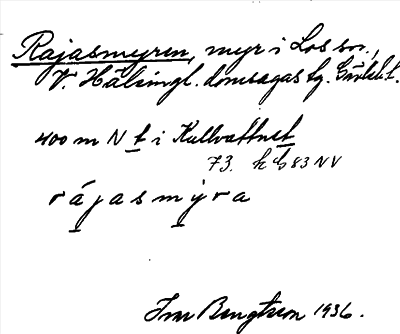 Rajasmyren, myr i Los sn.,
V. Hälsingl. domsagas tg. Gävleb. l.
400 m N t i Kullvattnet
73. h 6 83 NV
rájasmýra
Bengtson 1936.